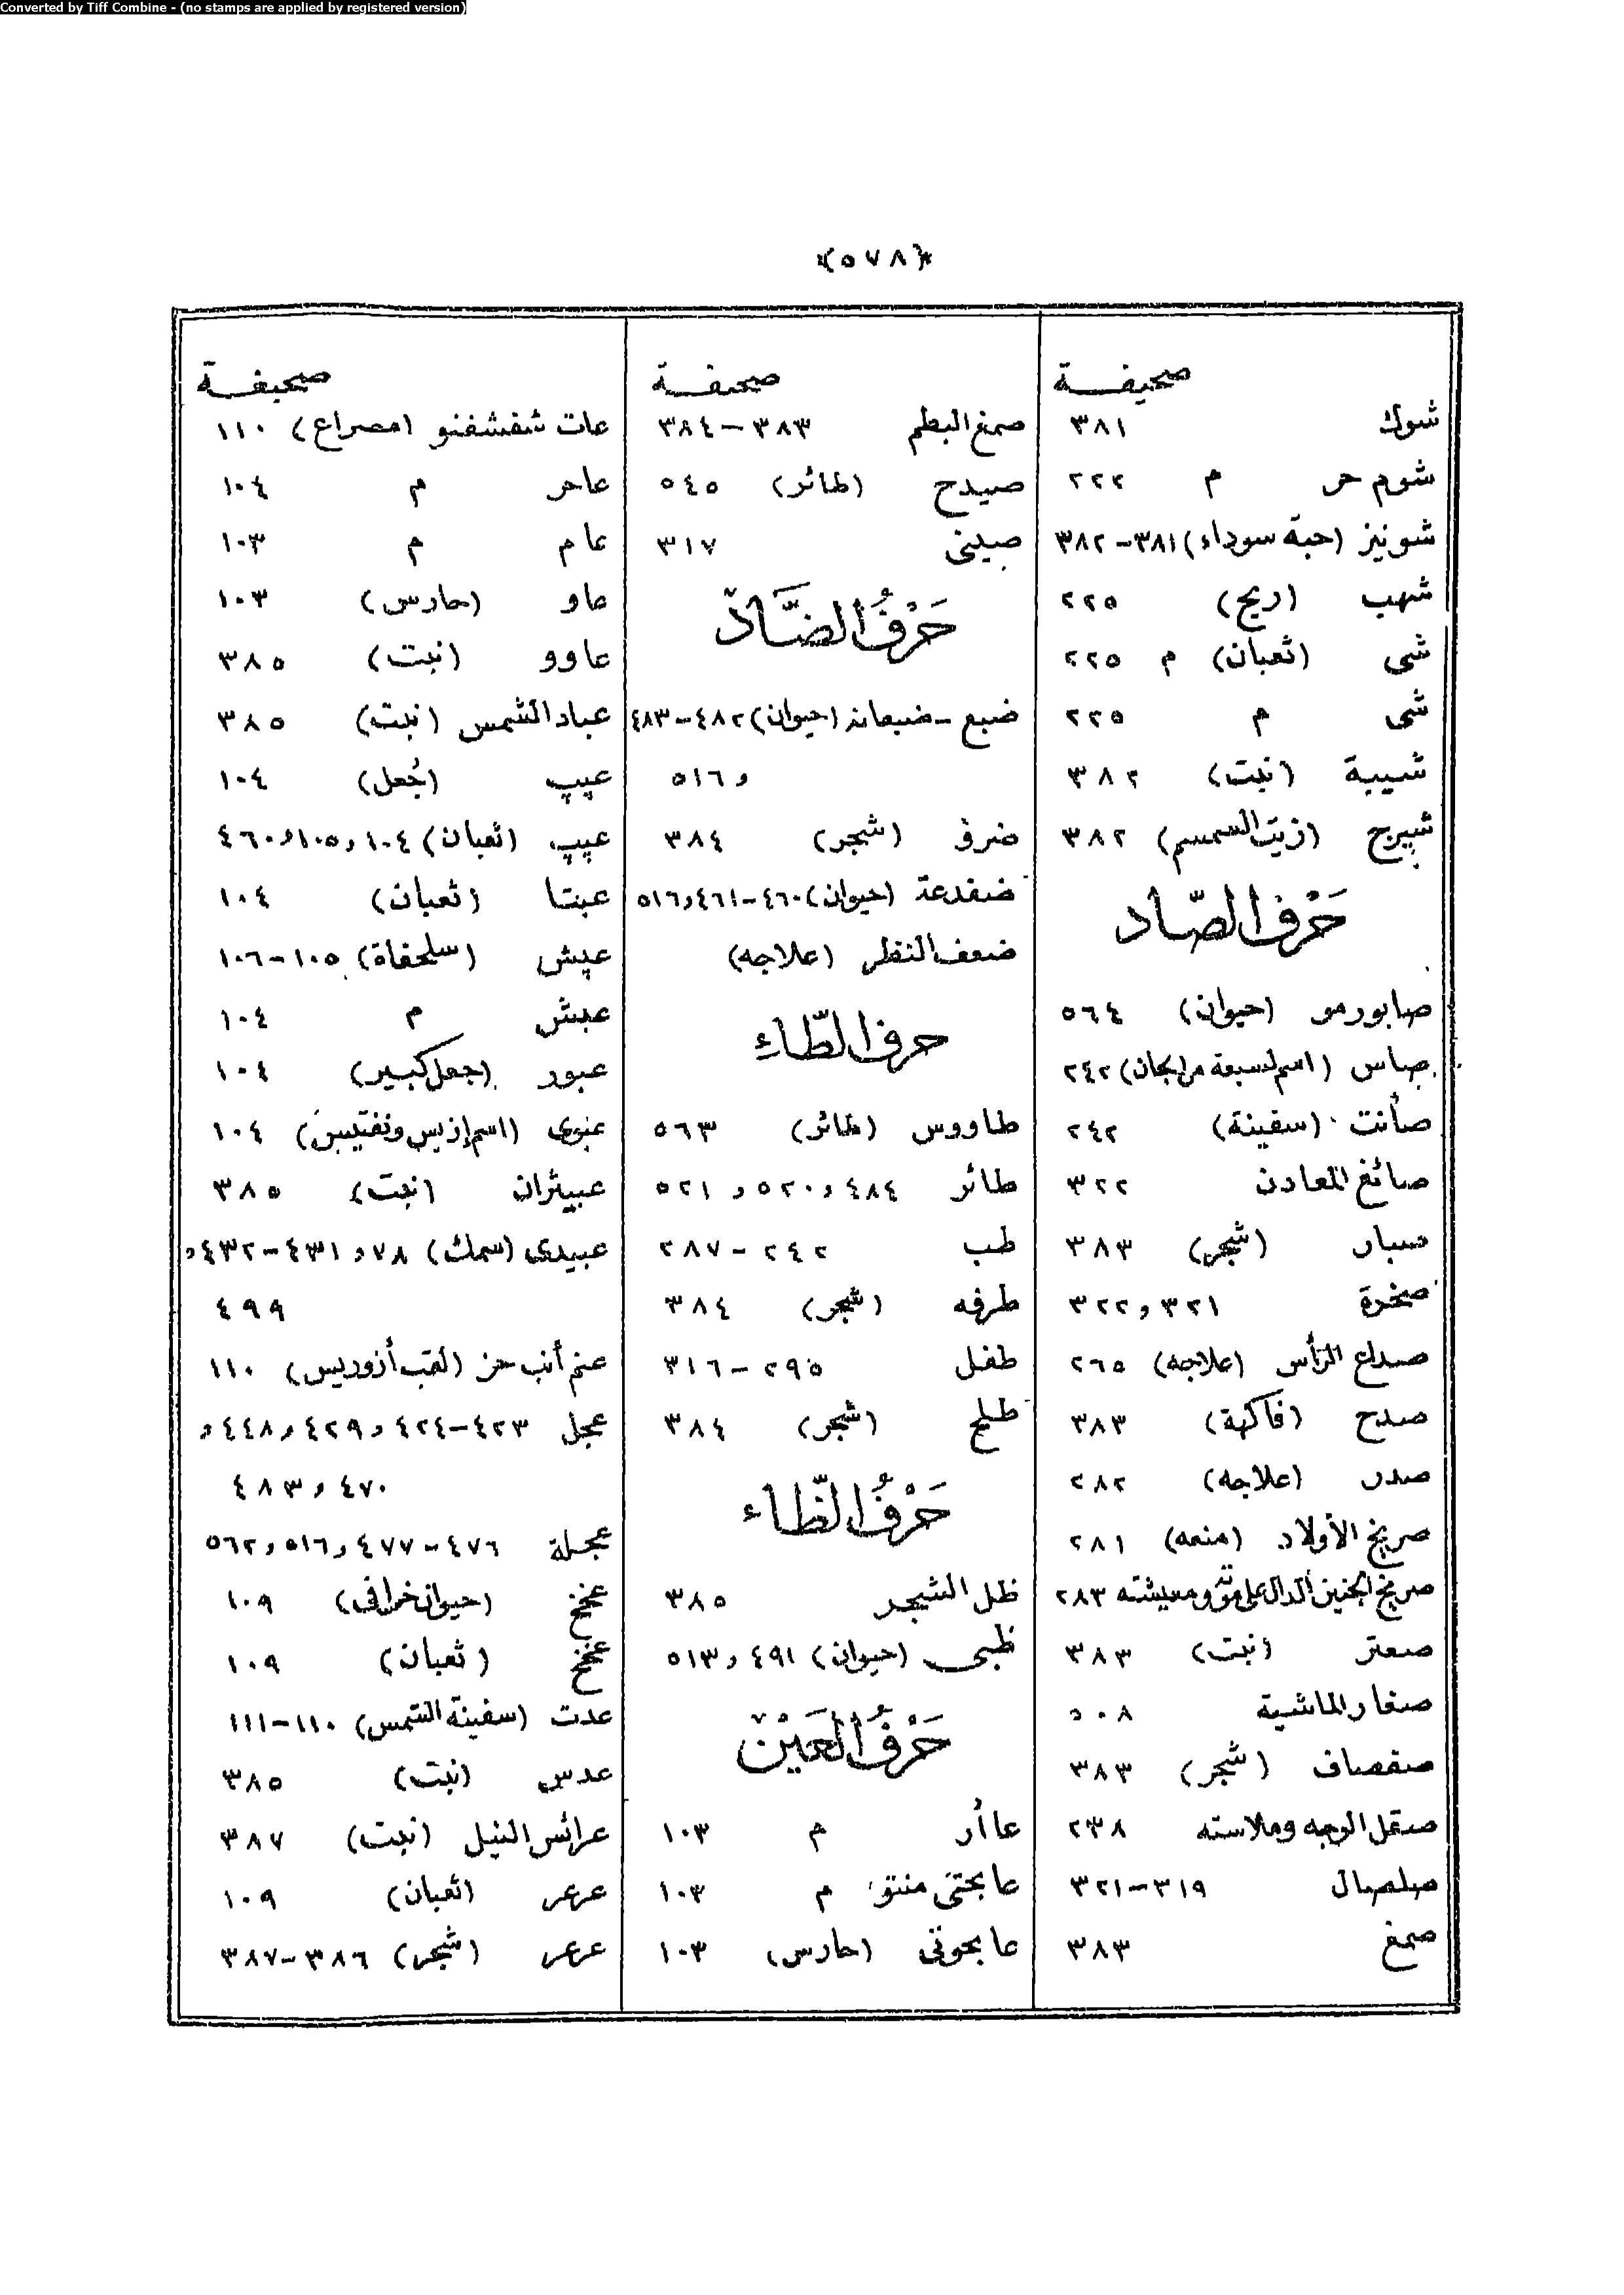 Converted by Tiff Combine - (no stamps are applied by registered version)
*(٥٧٨)*
صحيفة
شوك ٣٨١
شوم حر م ٢٢٢
شونيز (حبة سوداء) ٣٨١-٣٨٢
شهب (ريح) ٢٢٥
شى (ثعبان) م ٢٢٥
شى م ٢٢٥
شيبة (نبت) ٣٨٢
شيرج (زيت السمسم) ٣٨٢
حَرْف الصّاد
صابورمو (حيوان) ٥٦٤
صباس (اسم لسبعة من الجان) ٢٤٢
صأنت (سفينة) ٢٤٢
صائغ المعادن ٣٢٢
صبار (شجر) ٣٨٣
صخرة ٣٢١ و ٣٢٢
صداع الرأس (علاجه) ٢٦٥
صدح (فاكهة) ٣٨٣
صدر (علاجه) ٢٨٢
صريخ الأولاد (منعه) ٢٨١
صريخ الجنين الدال على موته ومعيشته ٢٨٣
صعتر (نبت) ٣٨٣
صغار الماشية ٥٠٨
صفصاف (شجر) ٣٨٣
صقل الوجه وملاسته ٢٣٨
صلصال ٣١٩-٣٢١
صمغ ٣٨٣
صحيفة
صمغ البطم ٣٨٣-٣٨٤
صيدح (طائر) ٥٤٥
صينى ٣١٧
حَرْفُ الضَّادْ
ضبع - ضبعانة (حيوان) ٤٨٢-٤٨٣
و ٥١٦
ضرف (شجر) ٣٨٤
ضفدعة (حيوان) ٤٦٠-٤٦١ و ٥١٦
ضعف النظر (علاجه)
حرف الطّاء
طاووس (طائر) ٥٦٣
طائر ٤٨٤ و ٥٢٠ و ٥٢١
طب ٢٤٢-٢٨٧
طرفه (شجر) ٣٨٤
طفل ٢٩٥-٣١٦
طلح (شجر) ٣٨٤
حَرْفُ الظّاء
ظل الشجر ٣٨٥
ظبى (حيوان) ٤٩١ و ٥١٣
حَرْفُ العَيْنْ
عاأر م ١٠٣
عابختى منتو م ١٠٣
عابحوتى (حارس) ١٠٣
صحيفة
عات شفشفنو (مصراع) ١١٠
عاحر م ١٠٤
عام م ١٠٣
عاو (حارس) ١٠٣
عاوو (نبت) ٣٨٥
عباد الشمس (نبت) ٣٨٥
عپپ (جُعل) ١٠٤
عپپ (ثعبان) ١٠٤ و ١٠٥ و ٤٦٠
عبنتا (ثعبان) ١٠٤
عپش (سلحفاة) ١٠٥-١٠٦
عبش م ١٠٤
عبور (جعل كبير) ١٠٤
عنوى (اسم إزيس ونفتيس) ١٠٤
عبيثران (نبت) ٣٨٥
عبيدى (سمك) ٧٨ و ٤٣١-٤٣٢ و
٤٩٩
عنم أنب حز (لقب أزوريس) ١١٠
عجل ٤٢٣-٤٢٤ و ٤٢٩ و ٤٤٨ و
٤٧٠ و ٤٨٣
عجلة ٤٧٦-٤٧٧ و ٥١٦ و ٥٦٢
عخخ (حيوان خرافى) ١٠٩
عخخ (ثعبان) ١٠٩
عدت (سفينة الشمس) ١١٠-١١١
عدس (نبت) ٣٨٥
عرائس النيل (نبت) ٣٨٧
عرعر (ثعبان) ١٠٩
عرعر (شجر) ٣٨٦-٣٨٧